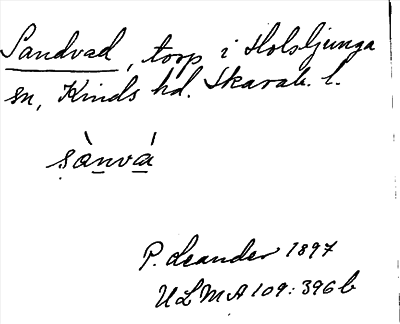 Sandvad, torp i Holsljunga
sn, Kinds hd. Skarab. l.
sànvá
P. Leander 1897
ULMA 109:396b